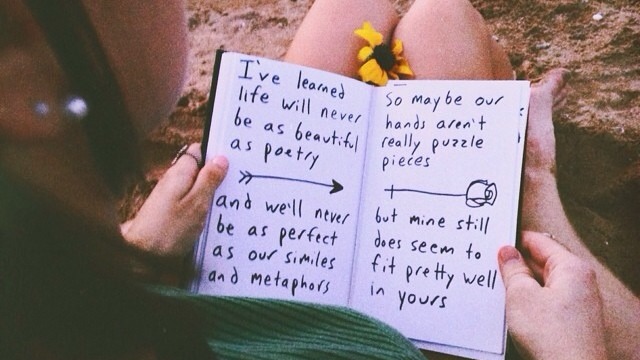 I've learned
life will never
be as beautiful
as poetry
and we'll never
be as perfect
as our similes
and metaphors
So maybe our
hands aren't
really puzzle
pieces
but mine still
does seem to
fit pretty well
in yours